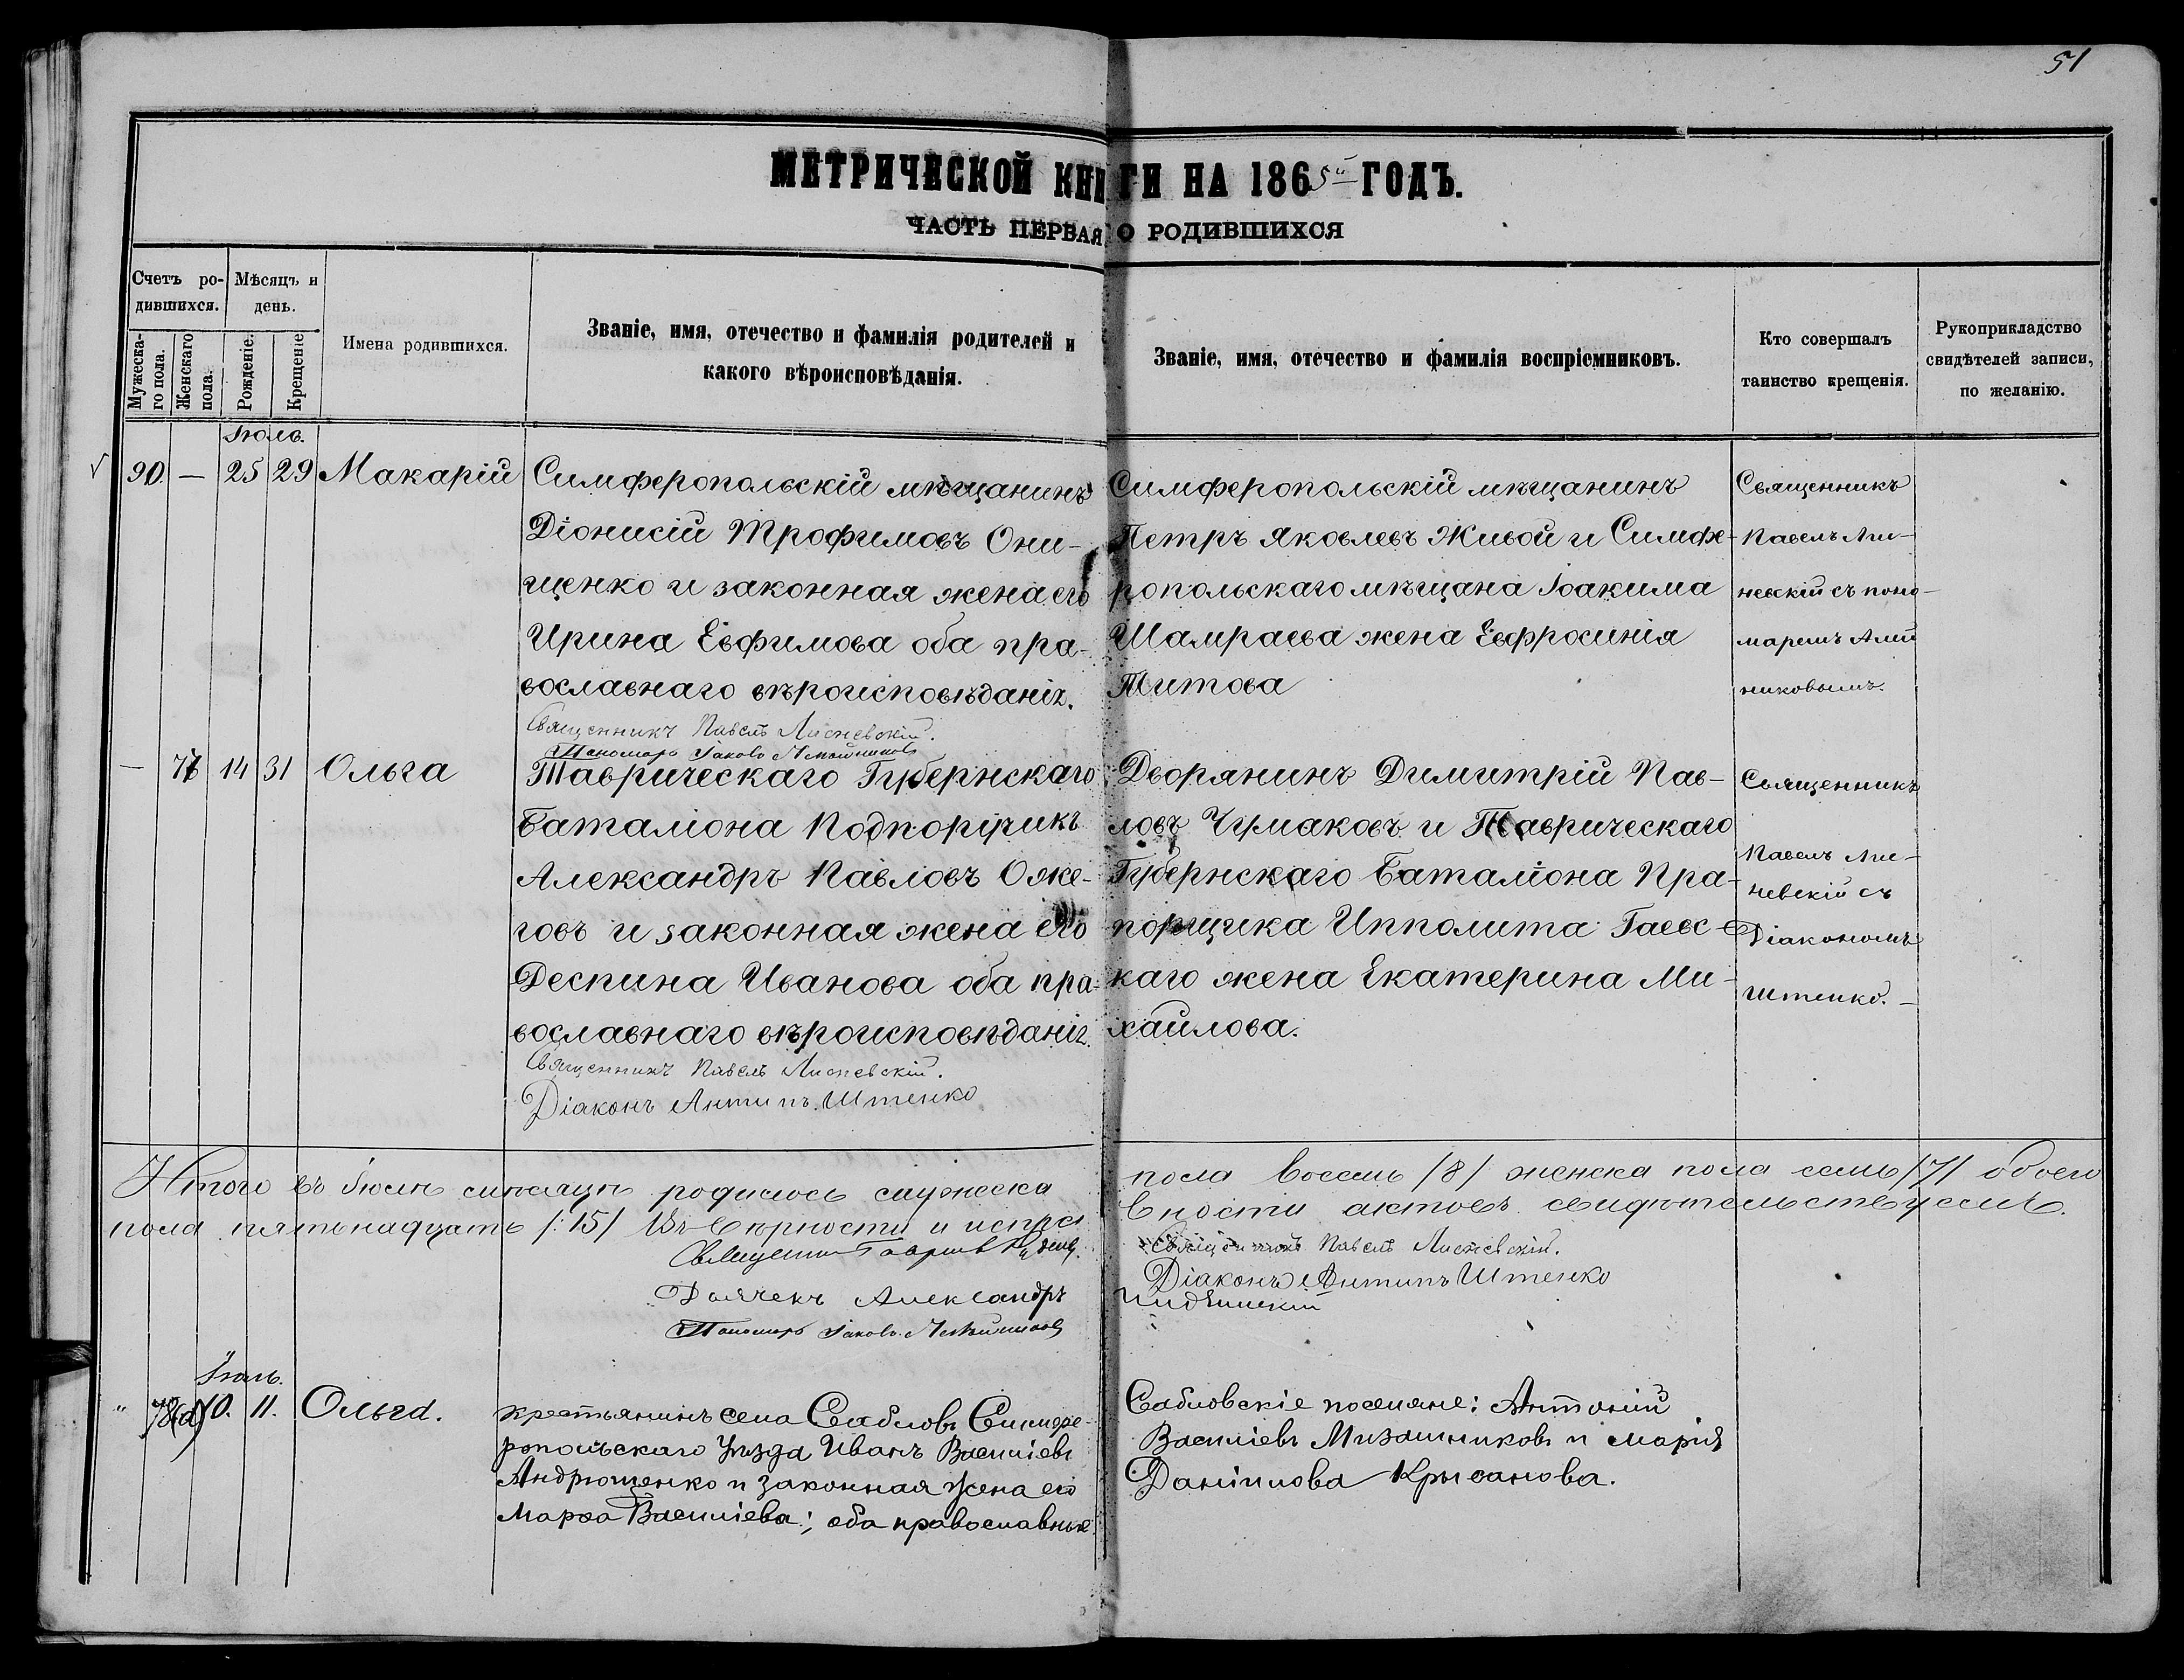 51
МЕТРИЧЕСКОЙ КНИГИ НА 1865й ГОДЪ.
ЧАСТЬ ПЕРВАЯ О РОДИВШИХСЯ
Счетъ ро-
дившихся.
Мѣсяцъ и
день.
Мужеска-
го пола.
Женскаго
пола.
Рожденіе.
Крещеніе
Имена родившихся.
Званіе, имя, отечество и фамилія родителей и
какого вѣроисповѣданія.
Званіе, имя, отечество и фамилія воспріемниковъ.
Кто совершалъ
таинство крещенія.
Рукоприкладство
свидѣтелей записи,
по желанію.
Іюль.
90. — 25 29 Макарій
Симферопольскій мѣщанинъ
Діонисій Трофимовъ Они-
щенко и законная жена его
Ирина Евфимова оба пра-
вославнаго вѣроисповѣданія.
Священникъ Павелъ Лисневскій.
Пономарь Іаковъ
Симферопольскій мѣщанинъ
Петръ Яковлевъ Живой и Симфе-
ропольскаго мѣщана Іоакима
Шамраева жена Евфросинія
Титова
Священникъ
Павелъ Ли-
невскій съ поно-
маремъ
никовымъ.
— 14 31 Ольга
Таврическаго Губернскаго
Баталіона Подпоручикъ
Александръ Павловъ Оже-
говъ и законная жена его
Деспина Иванова оба пра-
вославнаго вѣроисповѣданія.
Священникъ Павелъ Лисневскій.
Діаконъ Антипъ Штенко
Дворянинъ Димитрій Пав-
ловъ Чумаковъ и Таврическаго
Губернскаго Баталіона Пра-
порщика Ипполита Гаевс-
каго жена Екатерина Ми-
хайлова.
Священникъ
Павелъ Ли-
невскій съ
Діакономъ
Штенко. —
Итого въ Іюлѣ мѣсяцѣ родилось мужеска
пола восемь /8/ женска пола семь /7/ обоего
пола пятьнадцать /:15/ Въ вѣрности и испра
вности актовъ свидѣтельствуемъ.
Священникъ Гавріилъ
Священникъ Павелъ Лисневскій.
Діаконъ Антипъ Штенко
Дьячекъ Александръ
Пономарь Іаковъ
Іюль.
" 78(а) 10. 11. Ольга.
крестьянинъ села Сабловъ Симфе-
ропольскаго Уѣзда Иванъ Василіевъ
Андрющенко и законная жена его
Марѳа Василіева; оба православные.
Сабловскіе поселяне: Антоній
Василіевъ Мизашниковъ и Марія
Даніилова Крысанова.